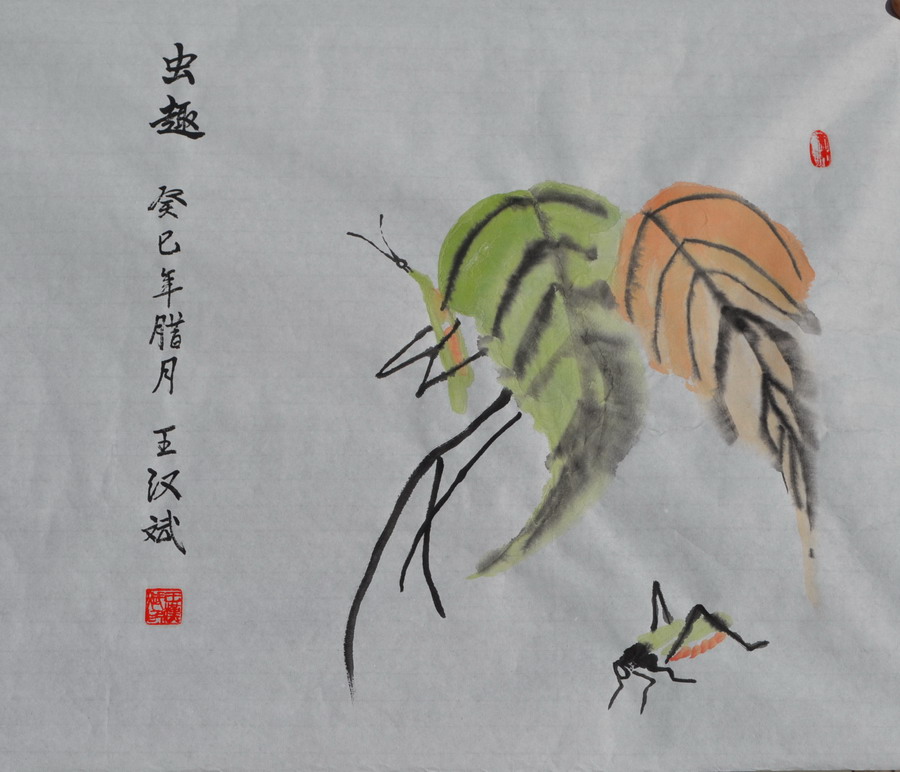 虫趣
癸巳年腊月
王汉斌